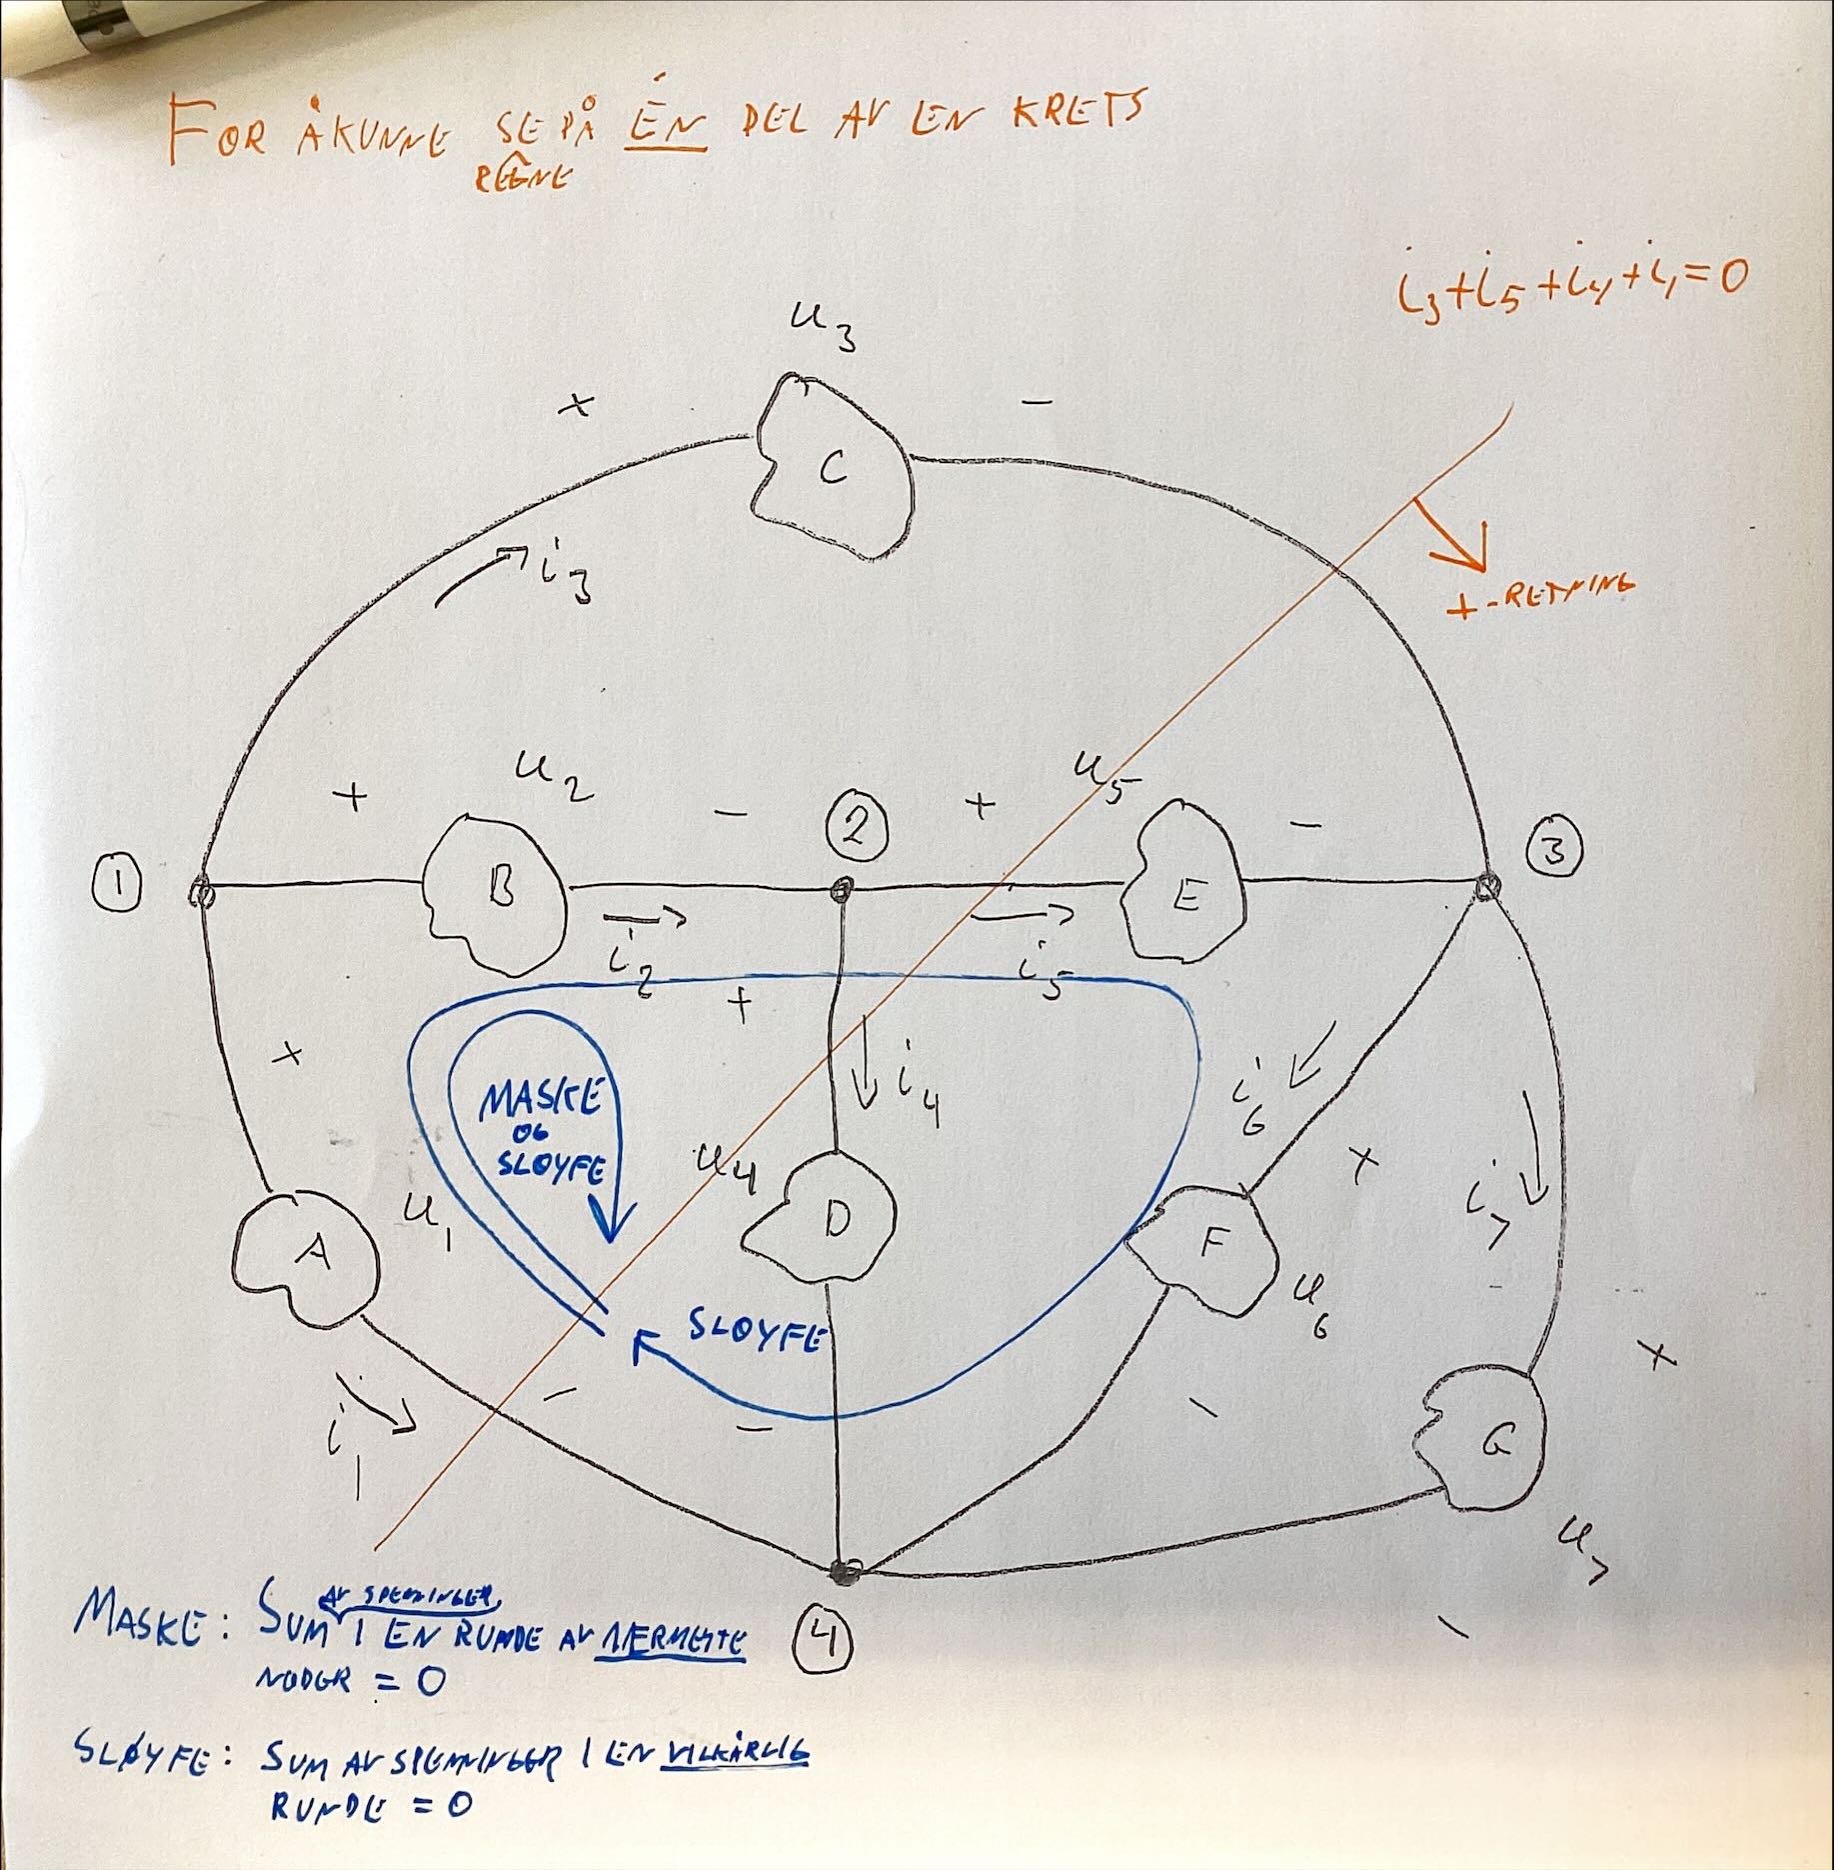 FOR Å KUNNE SE PÅ ÉN DEL AV EN KRETS
REGNE
i3+i5+i4+i1=0
u3
+ −
C
i3
+-RETNING
u2 u5
+ − 2 + −
1 B E 3
i2 i5
+
+
MASKE
OG
SLØYFE
i4
i6
+
u4
u1
D
A
F
i7
u6
SLØYFE
+
− − −
i1
G
u7
AV SPENNINGER
MASKE: SUM I EN RUNDE AV NÆRMESTE
NODER = 0
4
−
SLØYFE: SUM AV SPENNINGER I EN VILKÅRLIG
RUNDE = 0